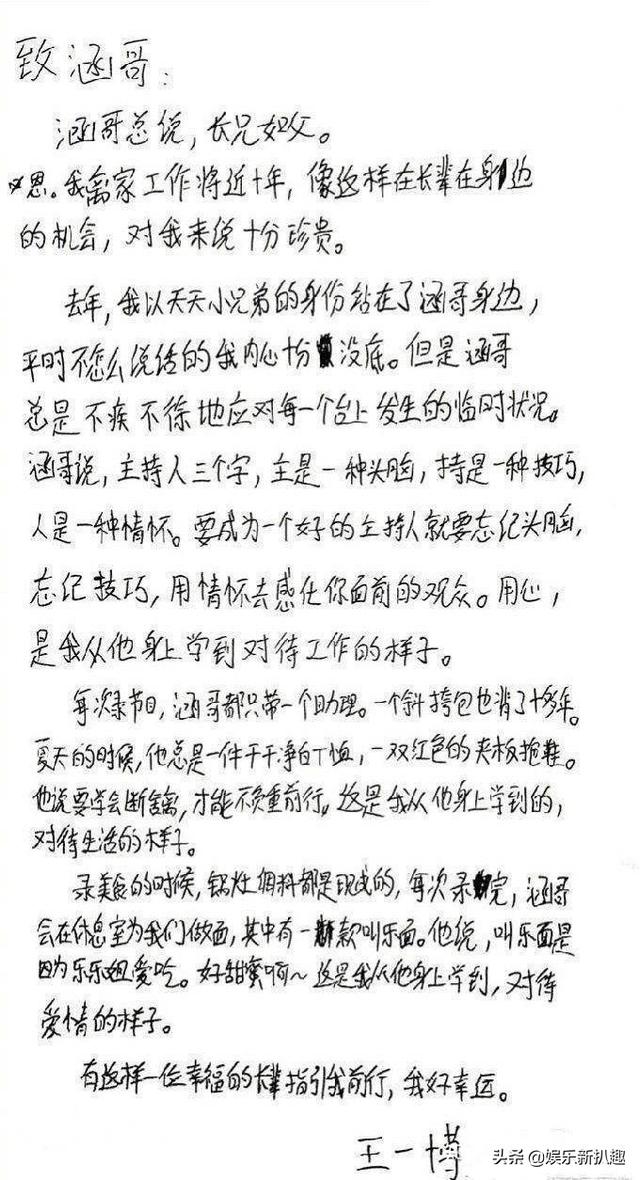 致涵哥：
涵哥总说，长兄如父。
思。我离家工作将近十年，像这样在长辈在身边
的机会，对我来说十分珍贵。
去年，我以天天小兄弟的身份站在了涵哥身边，
平时不怎么说话的我内心十分没底。但是涵哥
总是不疾不徐地应对每一个台上发生的临时状况。
涵哥说，主持人三个字，主是一种头脑，持是一种技巧，
人是一种情怀。要成为一个好的主持人就要忘记头脑，
忘记技巧，用情怀去感化你面前的观众。用心，
是我从他身上学到对待工作的样子。
每次录节目，涵哥都只带一个助理。一个斜挎包也背了十多年。
夏天的时候，他总是一件干干净白T恤，一双红色的夹板拖鞋。
他说要学会断舍离，才能不负重前行。这是我从他身上学到的，
对待生活的样子。
录美食的时候，锅灶调料都是现成的，每次录完，涵哥
会在休息室为我们做面，其中有一款叫乐面。他说，叫乐面是
因为乐乐姐爱吃。好甜蜜啊～这是我从他身上学到，对待
爱情的样子。
有这样一位幸福的长辈指引我前行，我好幸运。
王一博
头条 @娱乐新扒趣